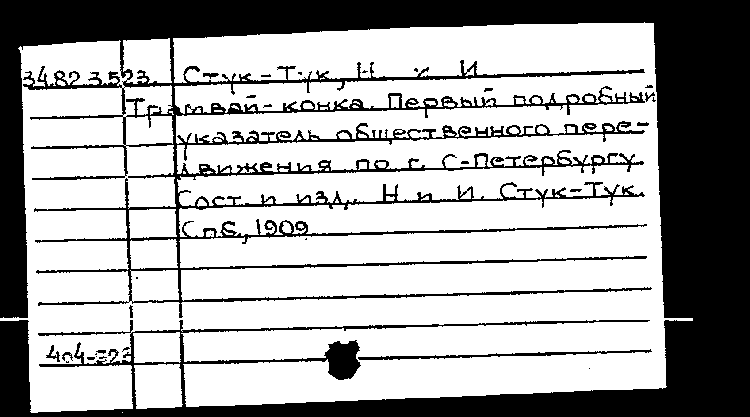 34.82.3.523. Стук-Тук, Н. и И.
Трамвай-конка. Первый подробный
указатель общественного пере-
движения по г. С-Петербургу.
Сост. и изд. Н и И. Стук-Тук.
Спб., 1909